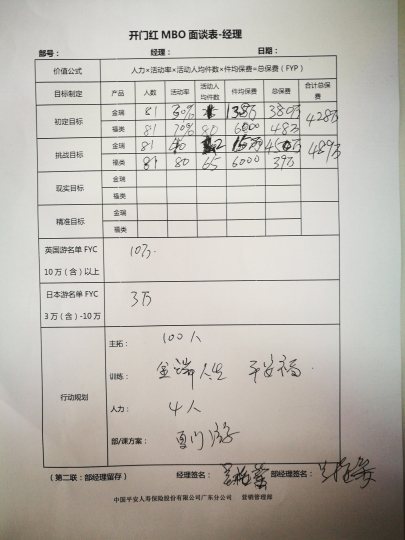 开门红 MBO 面谈表-经理
部号： 经理： 日期：
价值公式 人力×活动率×活动人均件数×件均保费=总保费（FYP）
目标制定 产品 人数 活动率 活动人均件数 件均保费 总保费 合计总保费
初定目标 金瑞 81 30% 380万 428万
福类 81 70% 80 6000 48万
挑战目标 金瑞 81 40 15万 450万 489万
福类 81 80 65 6000 39万
现实目标 金瑞
福类
精准目标 金瑞
福类
英国游名单 FYC 10万（含）以上 10万.
日本游名单 FYC 3万（含）-10万 3万
行动规划
主拓： 100人
训练： 金瑞人生 平安福.
人力： 4人
部/课方案： 厦门游
（第二联：部经理留存） 经理签名： 部经理签名：
中国平安人寿保险股份有限公司广东分公司 营销管理部